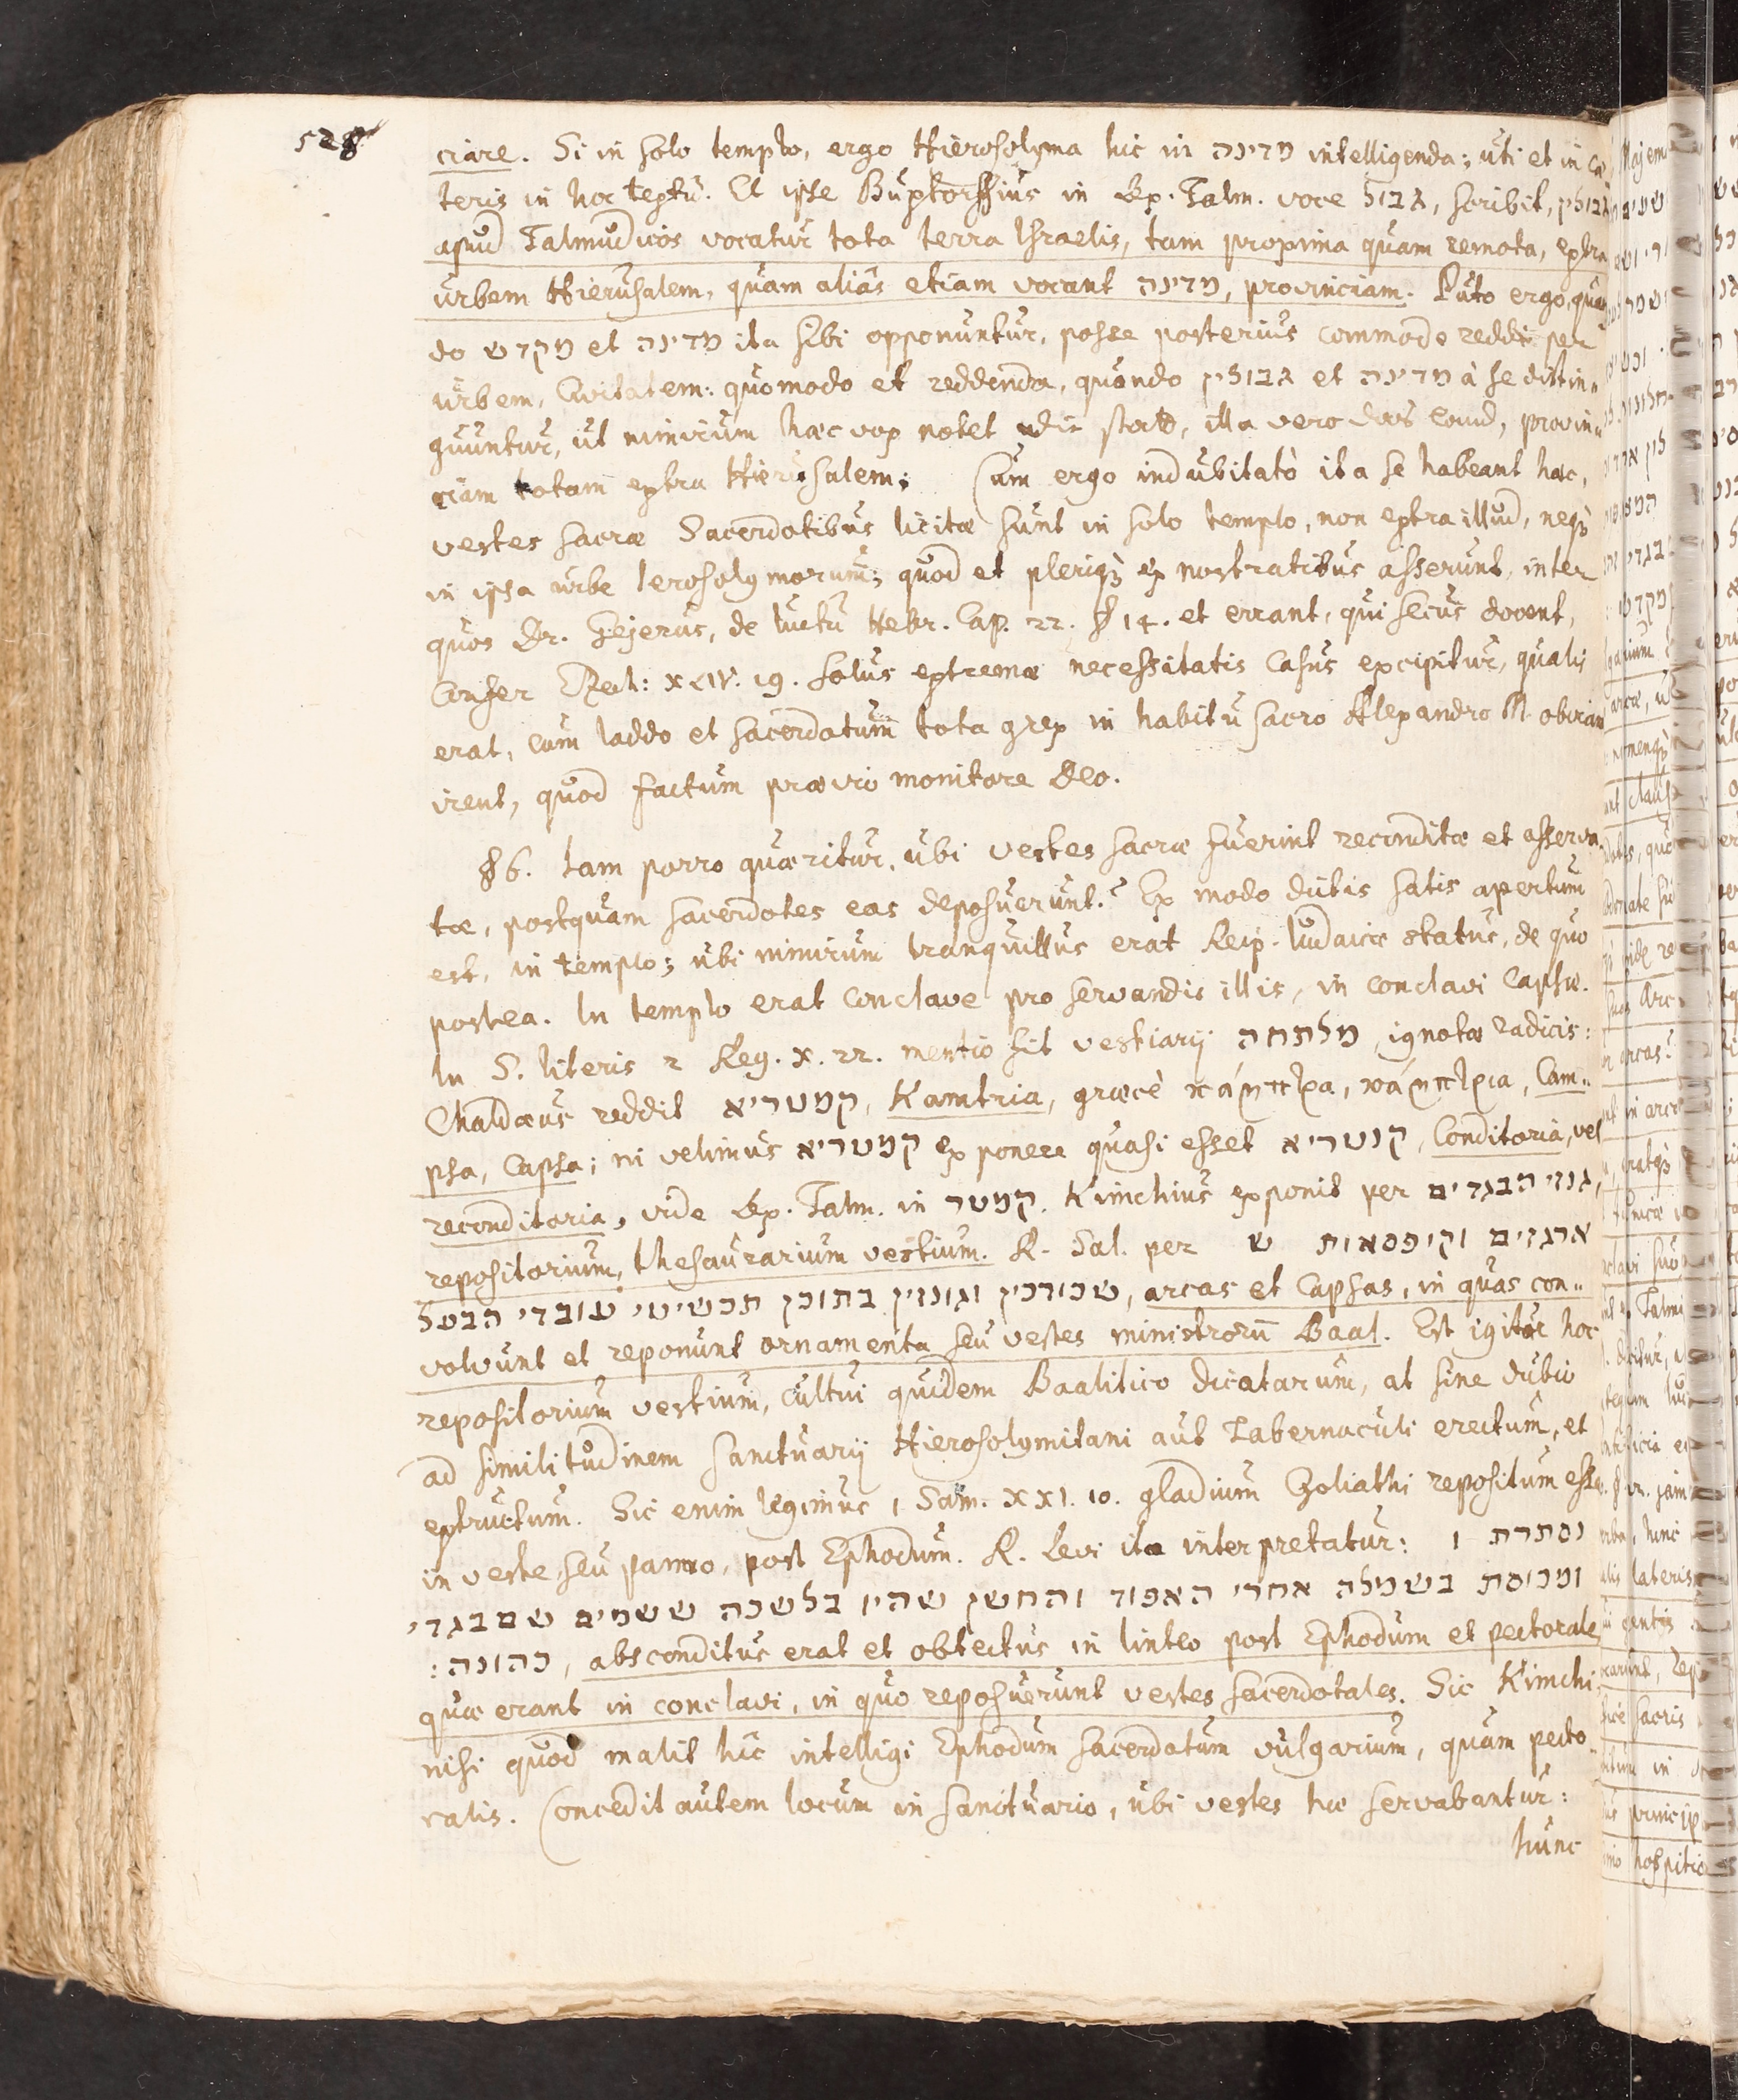 528
ciare. Si in solo templo, ergo Hierosolyma hic in מדינה intelligenda; uti et in cæ
teris in hoc textu. Et ipse Buxtorffius in Lex. Talm. voce גבול, scribit, גבולין
apud Talmudicos vocatur tota terra Israelis, tam propinqua quam remota, extra
urbem Hierusalem, quam aliàs etiam vocant מדינה, provinciam. Puto ergo, quan
do מקדש et מדינה ita sibi opponuntur, posse posterius commode reddi per
urbem, Civitatem: quomodo et reddenda, quando גבולין et מדינה à se distin„
guuntur, ut nimirum hæc vox notet die stadt, illa vero das land, provin„
ciam totam extra Hierusalem; Cum ergo indubitatò ita se habeant hæc,
vestes sacræ Sacerdotibus licitæ sunt in solo templo, non extra illud, neqꝫ
in ipsa urbe Ierosolymorum; quod et pleriqꝫ ex nostratibus asserunt, inter
quos Dr. Gejerus, de luctu Hebr. Cap. 22. § 14. et errant, qui secus docent,
Confer Ezech: XLIV. 19. Solus extremæ necessitatis casus excipitur, qualis
erat, cum Iaddo et sacerdotum tota grex in habitu sacro Alexandro M. obviam
irent, quod factum prævio monitore Deo.
§ 6. Iam porro quæritur, ubi vestes sacræ fuerint reconditæ et asserva„
tæ, postquam sacerdotes eas deposuerunt? Ex modo dictis satis apertum
est, in templo; ubi nimirum tranquillus erat Reip. Iudaicæ status, de quo
postea. In templo erat conclave pro servandis illis, in conclavi capsæ.
In S. literis 2 Reg. X. 22. mentio fit vestiarij מלתחה, ignotæ radicis:
Chaldæus reddit קמטריא, Kamtria, græcè κάμπτρα, κάμπτρια, Cam„
psa, Capsa; ni velimus קמטריא exponere quasi esset קנטריא, Conditoria, vel
reconditoria, vide Lex. Talm. in קמטר. Kimchius exponit per גנזי הבגדים,
repositorium, thesaurarium vestium. R. Sal. per ארגזים וקיפסאות ש
שכורכין וגונזין בתוכן תכשיטי עובדי הבעל, arcas et capsas, in quas con„
volvunt et reponunt ornamenta seu vestes ministrorū Baal. Est igitur hoc
repositorium vestium, cultui quidem Baalitico dicatarum, at sine dubio
ad similitudinem Sanctuarij Hierosolymitani aut Tabernaculi erectum, et
extructum. Sic enim legimus 1 Sam. XXI. 10. gladium Goliathi repositum esse
in veste, seu panno, post Ephodum. R. Levi ita interpretatur: נסתרת ו
ומכוסת בשמלה אחרי האפוד והחשן שהיו בלשכה ששמים שם בגדי
כהונה:, absconditus erat et obtectus in linteo post Ephodum et pectorale
quæ erant in conclavi, in quo reposuerunt vestes sacerdotales. Sic Kimchi
nisi quod malit hîc intelligi Ephodum sacerdotum vulgarium, quam pecto„
ralis. Concedit autem locum in Sanctuario, ubi vestes hæ servabantur:
hunc